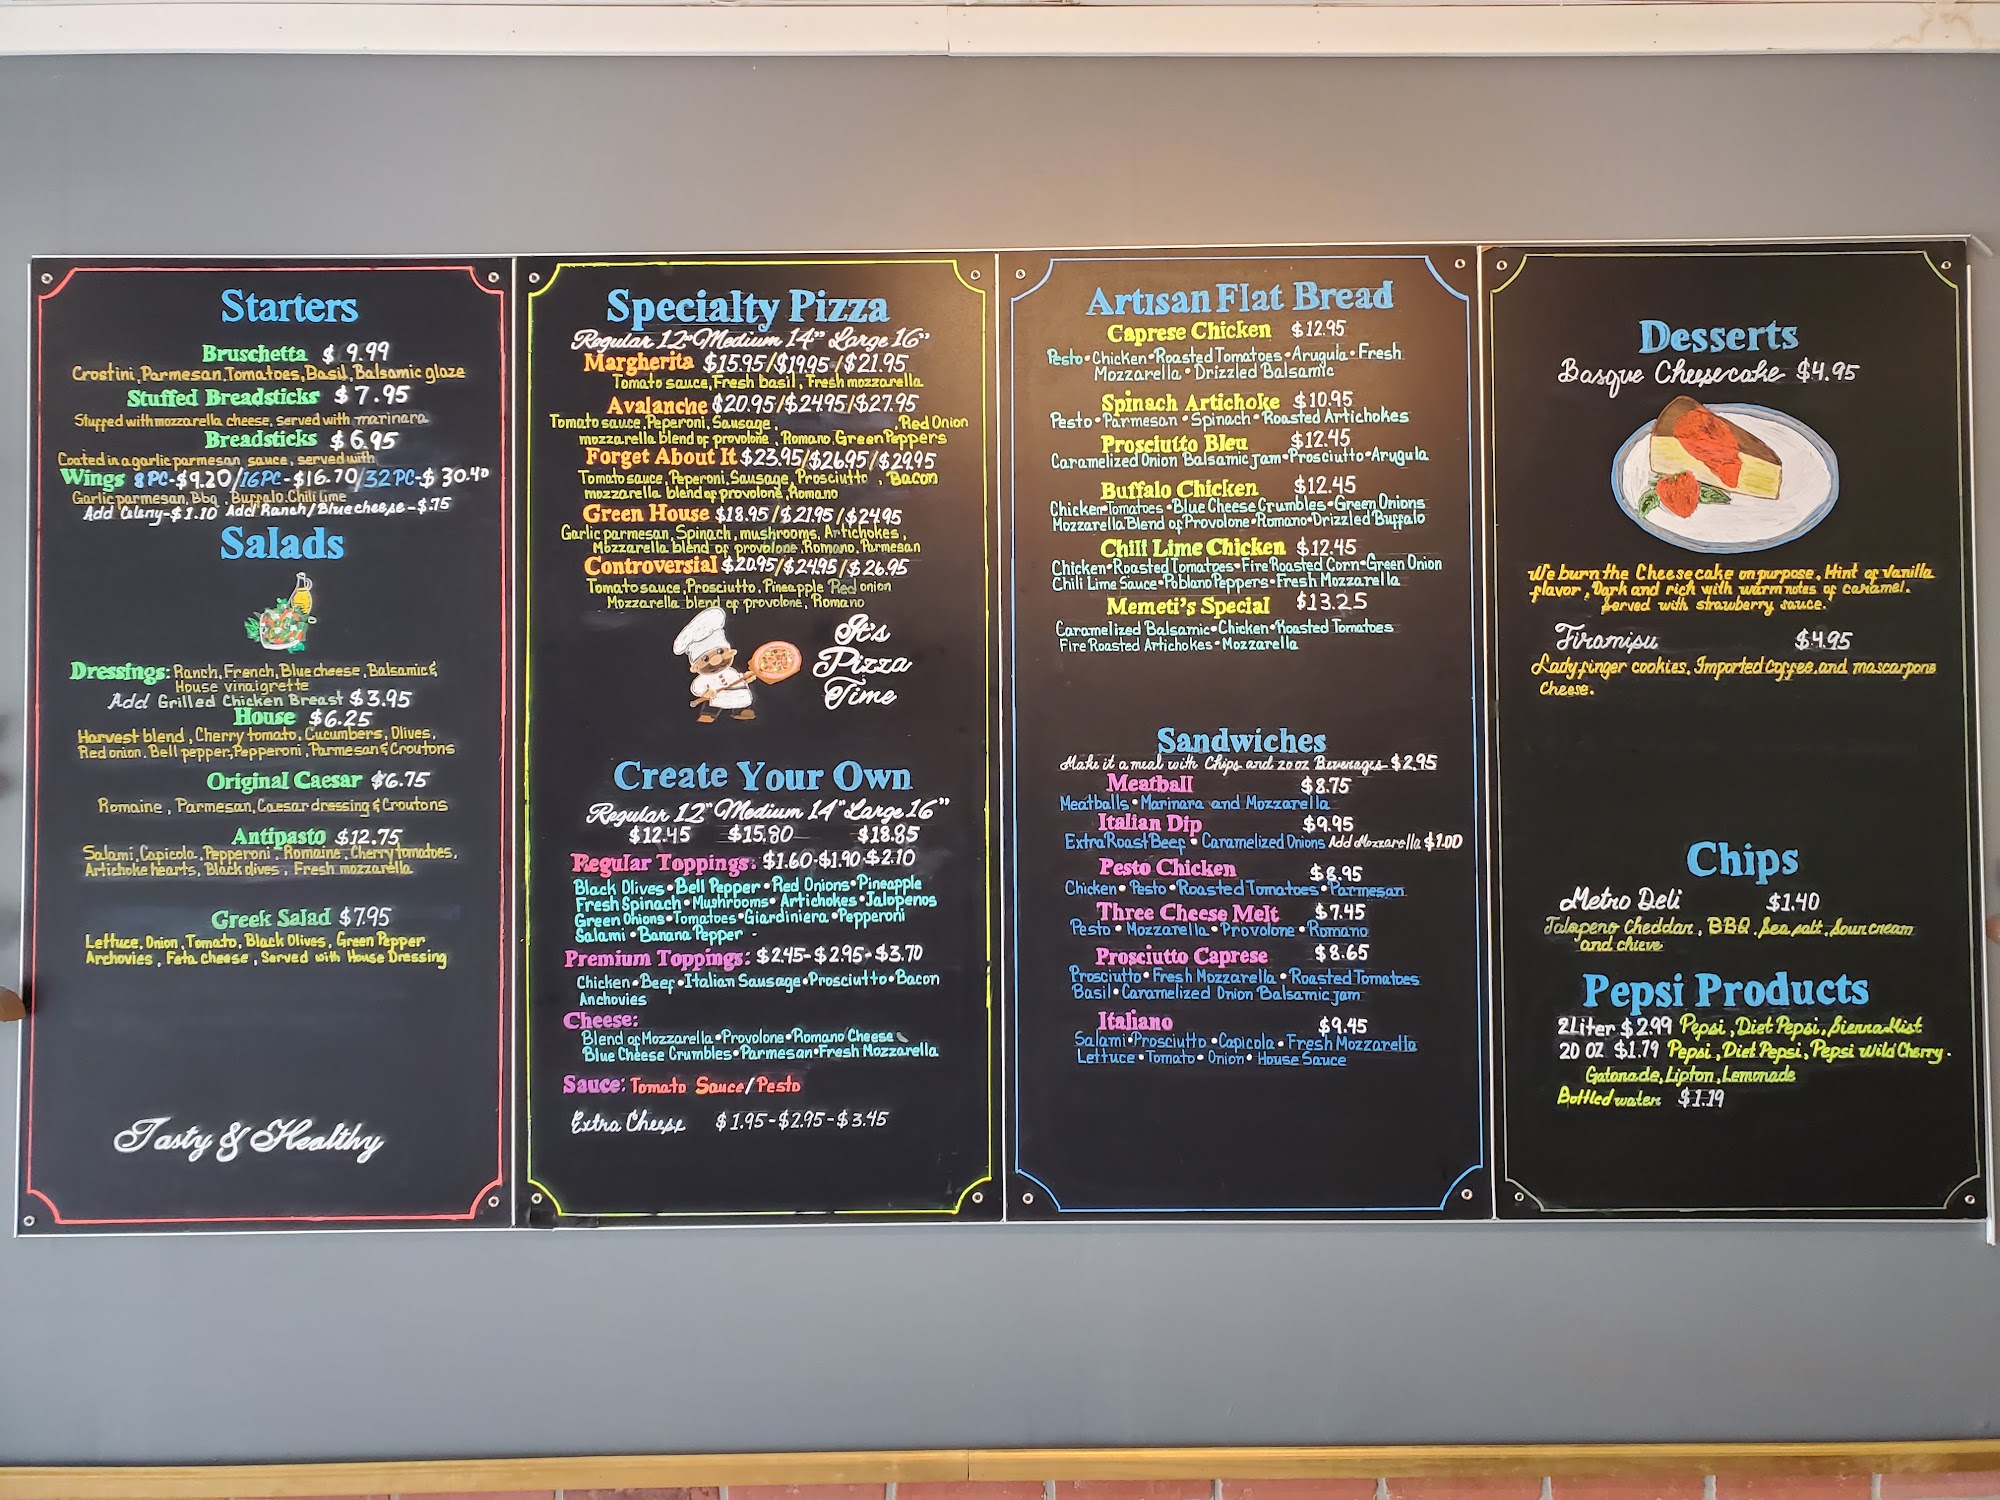 Starters
Bruschetta $ 9.99
Crostini, Parmesan, Tomatoes, Basil, Balsamic glaze
Stuffed Breadsticks $ 7.95
Stuffed with mozzarella cheese, served with marinara
Breadsticks $ 6.95
Coated in a garlic parmesan sauce, served with
Wings 8 PC-$9.20/16 PC-$16.70/32 PC-$ 30.40
Garlic parmesan, Bbq , Buffalo, Chili lime
Add Celery-$1.10 Add Ranch/Blue cheese-$.75
Salads
Dressings: Ranch, French, Blue cheese, Balsamic &
House vinaigrette
Add Grilled Chicken Breast $3.95
House $6.25
Harvest blend, Cherry tomato, Cucumbers, Olives,
Red onion, Bell pepper, Pepperoni, Parmesan & Croutons
Original Caesar $6.75
Romaine, Parmesan, Caesar dressing & Croutons
Antipasto $12.75
Salami, Capicola, Pepperoni, Romaine, Cherry tomatoes,
Artichoke hearts, Black olives, Fresh mozzarella
Greek Salad $7.95
Lettuce, Onion, Tomato, Black Olives, Green Pepper
Archovies, Feta cheese, Served with House Dressing
Tasty & Healthy
Specialty Pizza
Regular 12" Medium 14" Large 16"
Margherita $15.95/$19.95/$21.95
Tomato sauce, Fresh basil, Fresh mozzarella
Avalanche $20.95/$24.95/$27.95
Tomato sauce, Peperoni, Sausage, , Red Onion
mozzarella blend of provolone, Romano, Green Peppers
Forget About It $23.95/$26.95/$29.95
Tomato sauce, Peperoni, Sausage, Prosciutto, Bacon
mozzarella blend of provolone, Romano
Green House $18.95/$21.95/$24.95
Garlic parmesan, Spinach, mushrooms, Artichokes,
Mozzarella blend of provolone, Romano, Parmesan
Controversial $20.95/$24.95/$26.95
Tomato sauce, Prosciutto, Pineapple Red onion
Mozzarella blend of provolone, Romano
It's
Pizza
Time
Create Your Own
Regular 12" Medium 14" Large 16"
$12.45 $15.80 $18.85
Regular Toppings: $1.60-$1.90-$2.10
Black Olives•Bell Pepper•Red Onions•Pineapple
Fresh Spinach•Mushrooms•Artichokes•Jalopenos
Green Onions•Tomatoes•Giardiniera•Pepperoni
Salami•Banana Pepper
Premium Toppings: $2.45-$2.95-$3.70
Chicken•Beef•Italian Sausage•Prosciutto•Bacon
Anchovies
Cheese:
Blend of Mozzarella•Provolone•Romano Cheese
Blue Cheese Crumbles•Parmesan•Fresh Mozzarella
Sauce: Tomato Sauce/Pesto
Extra Cheese $1.95-$2.95-$3.45
Artisan Flat Bread
Caprese Chicken $12.95
Pesto•Chicken•Roasted Tomatoes•Arugula•Fresh
Mozzarella•Drizzled Balsamic
Spinach Artichoke $10.95
Pesto•Parmesan•Spinach•Roasted Artichokes
Prosciutto Bleu $12.45
Caramelized Onion Balsamic jam•Prosciutto•Arugula
Buffalo Chicken $12.45
Chicken•Tomatoes•Blue Cheese Crumbles•Green Onions
Mozzarella Blend of Provolone•Romano•Drizzled Buffalo
Chili Lime Chicken $12.45
Chicken•Roasted Tomatoes•Fire Roasted Corn•Green Onion
Chili Lime Sauce•Poblano Peppers•Fresh Mozzarella
Memeti's Special $13.25
Caramelized Balsamic•Chicken•Roasted Tomatoes
Fire Roasted Artichokes•Mozzarella
Sandwiches
Make it a meal with Chips and 20 oz Beverages $2.95
Meatball $8.75
Meatballs•Marinara and Mozzarella
Italian Dip $9.95
Extra Roast Beef•Caramelized Onions Add Mozzarella $1.00
Pesto Chicken $8.95
Chicken•Pesto•Roasted Tomatoes•Parmesan
Three Cheese Melt $7.45
Pesto•Mozzarella•Provolone•Romano
Prosciutto Caprese $8.65
Prosciutto•Fresh Mozzarella•Roasted Tomatoes
Basil•Caramelized Onion Balsamic jam
Italiano $9.45
Salami•Prosciutto•Capicola•Fresh Mozzarella
Lettuce•Tomato•Onion•House Sauce
Desserts
Basque Cheesecake $4.95
We burn the Cheesecake on purpose. Hint of Vanilla
flavor, Dark and rich with warm notes of caramel.
Served with strawberry sauce.
Tiramisu $4.95
Lady finger cookies, Imported Coffee, and mascarpone
Cheese.
Chips
Metro Deli $1.40
Jalapeno Cheddar, BBQ, Sea salt, Sour cream
and chieve
Pepsi Products
2 Liter $2.99 Pepsi, Diet Pepsi, Sierra Mist
20 OZ $1.79 Pepsi, Diet Pepsi, Pepsi Wild Cherry.
Gatorade, Lipton, Lemonade
Bottled water $1.19